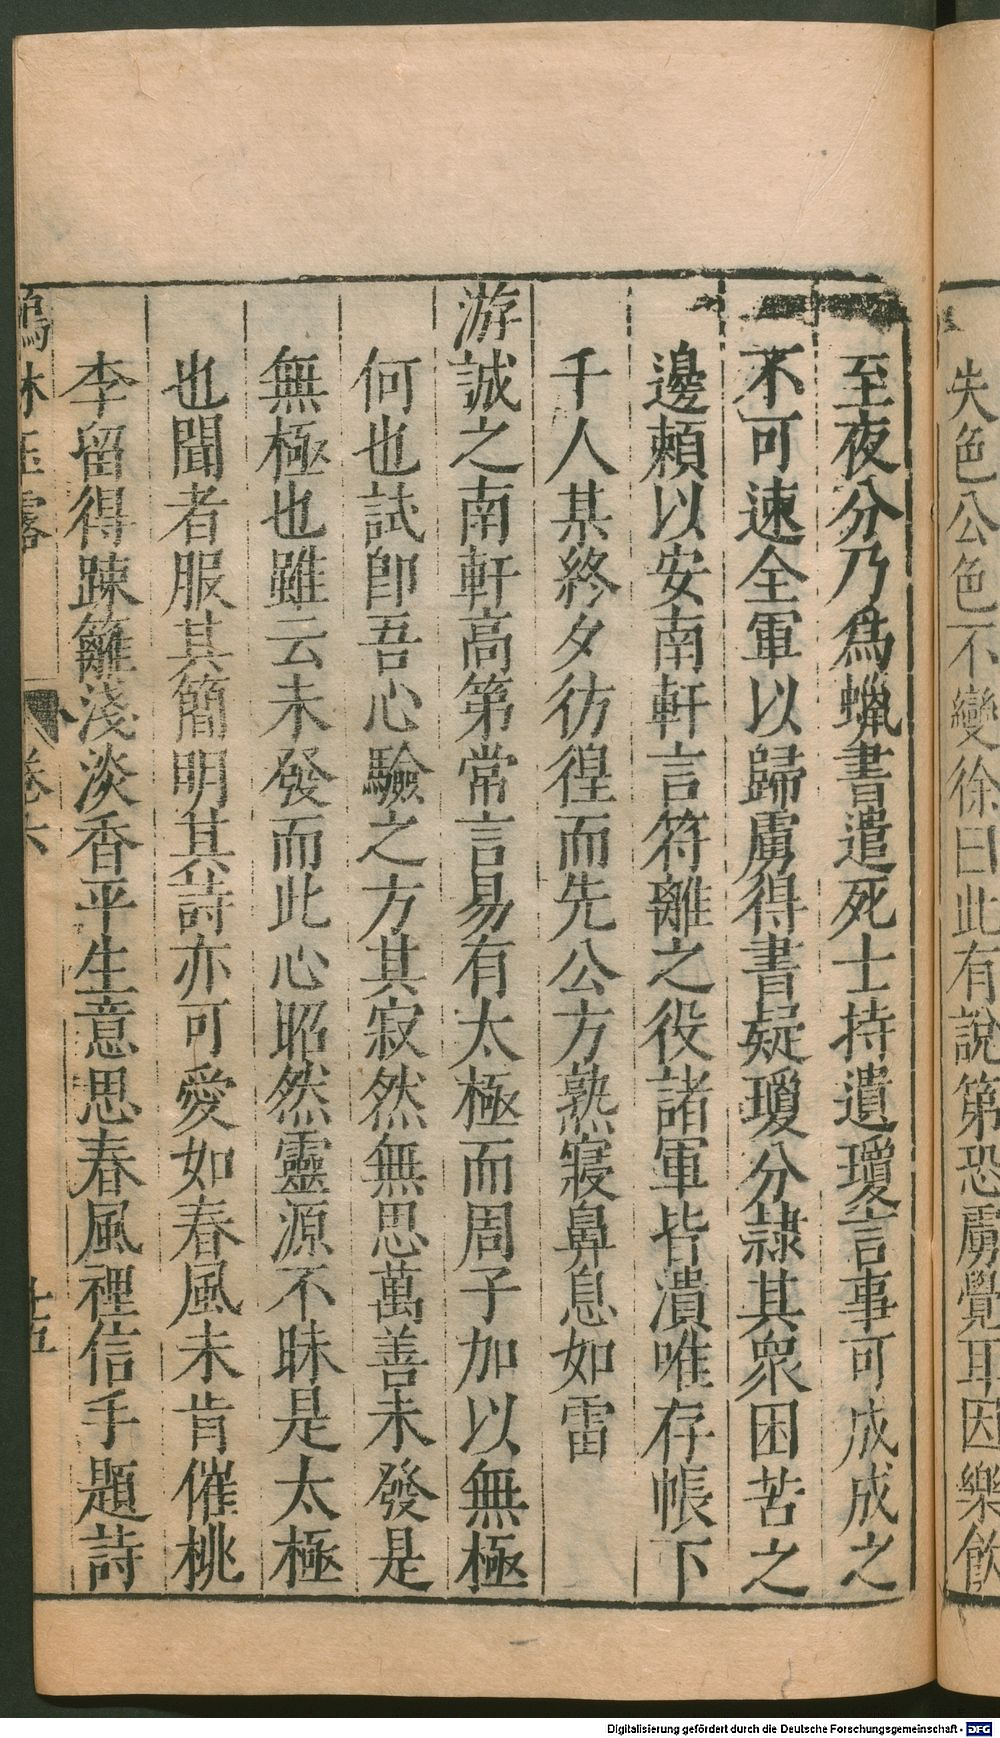 失色公色不變徐曰此有說第恐虜覺耳因樂飲
至夜分乃爲蠟書遣死士持遺瓊言事可成成之
不可速全軍以歸虜得書疑瓊分隸其衆困苦之
邊賴以安南軒言符離之役諸軍皆潰唯存帳下
千人某終夕彷徨而先公方熟寢鼻息如雷
游誠之南軒高第常言易有太極而周子加以無極
何也試卽吾心驗之方其寂然無思萬善未發是
無極也雖云未發而此心昭然靈源不昧是太極
也聞者服其簡明其詩亦可愛如春風未肯催桃
李留得踈籬淺淡香平生意思春風裡信手題詩
鶴林玉露 卷六 十五
Digitalisierung gefördert durch die Deutsche Forschungsgemeinschaft - DFG